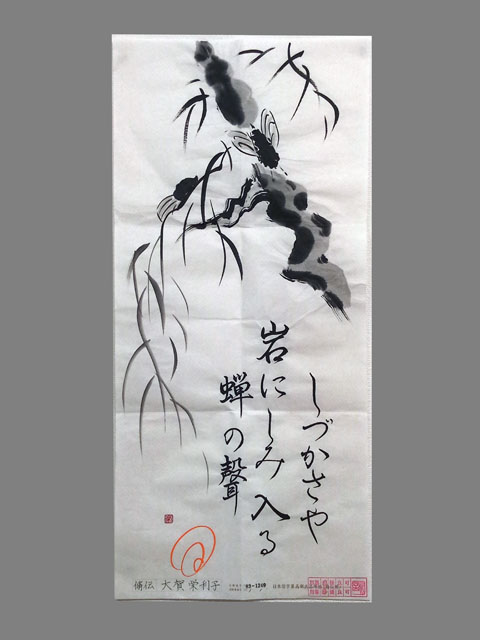 しづかさや
岩にしみ入る
蝉の聲
大賀 栄利子